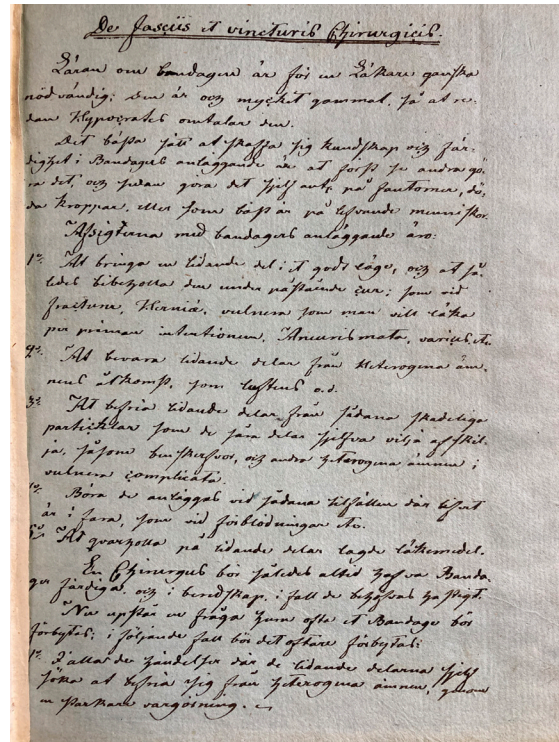 De fasciis et vincturis Chirurgicis.
Läran om bandagen är för en Läkare ganska
nödvändig; den är och mycket gammal, så at re-
dan Hypocrates omtalar den.
Det bästa sätt at skaffa sig kundskap och fär-
dighet i Bandagers anläggande är at först se andra gö-
ra det, och sedan göra det sjelf antingen på fantomer, dö-
da kroppar, eller som bäst är på lefvande menniskor.
Afsigterna med bandagers anläggande äro:
1o. At bringa en lidande del i et godt läge, och at så-
ledes bibeholla den under påstående cur; som vid
fracturer, Hernia, vulnera som man vill läka
per primam intentionem, Aneurismata, varices etc.
2o. At bevara lidande delar från Heterogena äm-
nens åtkomst, som luftens o.d.
3o. At befria lidande delar från sådana skadeliga
particklar som de sära delar sjelfva vilja afskil-
ja, såsom benskerfvor, och andra heterogena ämnen i
vulnera complicata.
4o. Böra de anläggas vid sådana tilfällen där lifvet
är i fara, som vid förblödningar etc.
5o. At qvarholla på lidande delar lagde läkemedel.
En Chirurgus bör således altid hafva Banda-
ger färdiga, och i beredskap, i fall de behöfvas hastigt.
Nu upstår en fråga huru ofta et Bandage bör
förbytas; i följande fall bör det oftare förbytas:
1o. I alla de händelser där de lidande delarna sjelf
söka at befria sig från heterogena ämnen, genom
en starkare vargörning.